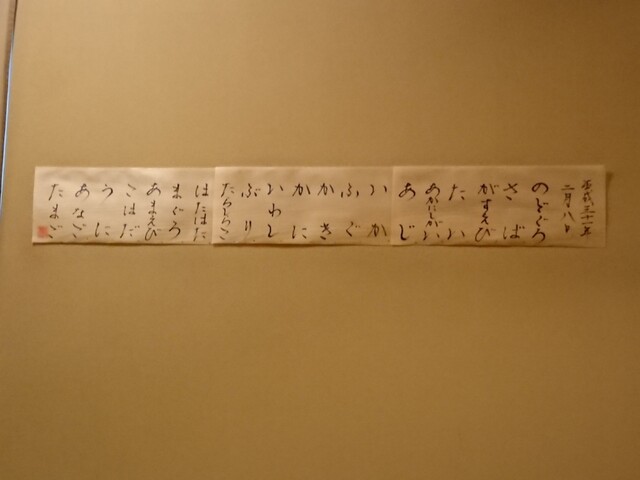 平成三十一年
二月八日
のどぐろ
さば
がすえび
たい
あかにしがい
あじ
いか
ふぐ
かき
かに
いわし
ぶり
たらしらこ
はたはた
まぐろ
あまえび
こはだ
うに
あなご
たまご